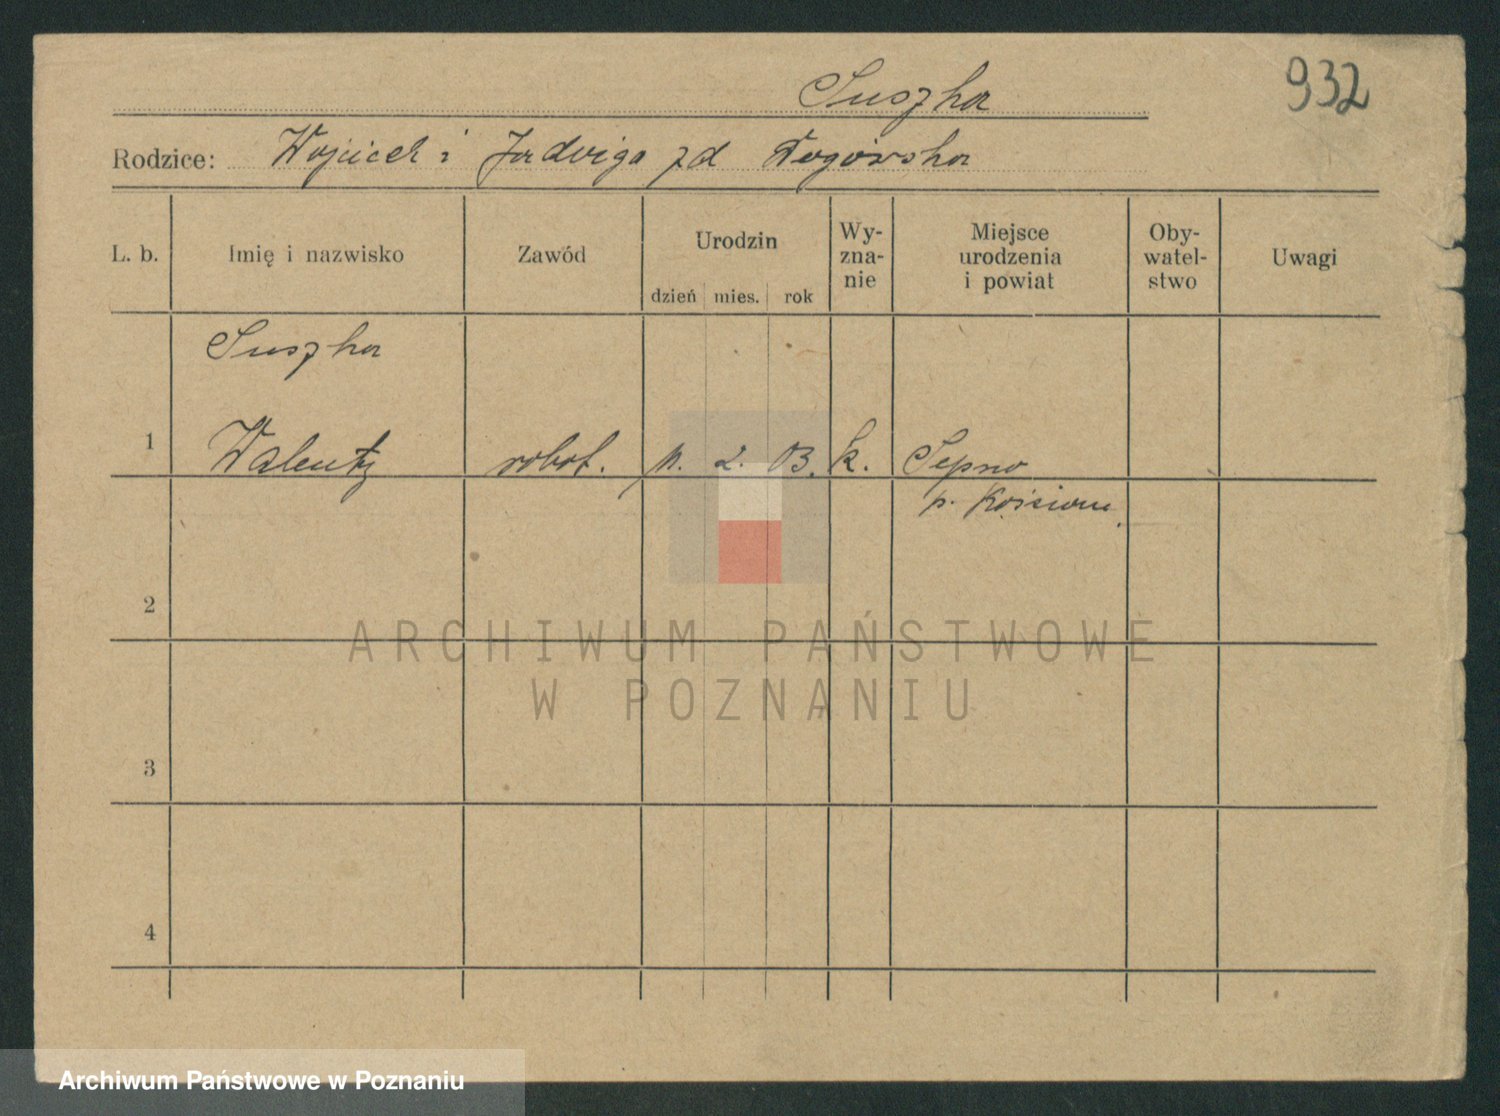 932
Suszka
Rodzice: Wojciech i Jadwiga zd
L. b. Imię i nazwisko Zawód Urodzin dzień mies. rok Wy-zna-nie Miejsce urodzenia i powiat Oby-watel-stwo Uwagi
Suszka
1 Walenty robot. 2. 03. k. Sepno
p. Kościan
2
3
4
ARCHIWUM PAŃSTWOWE
W POZNANIU
Archiwum Państwowe w Poznaniu